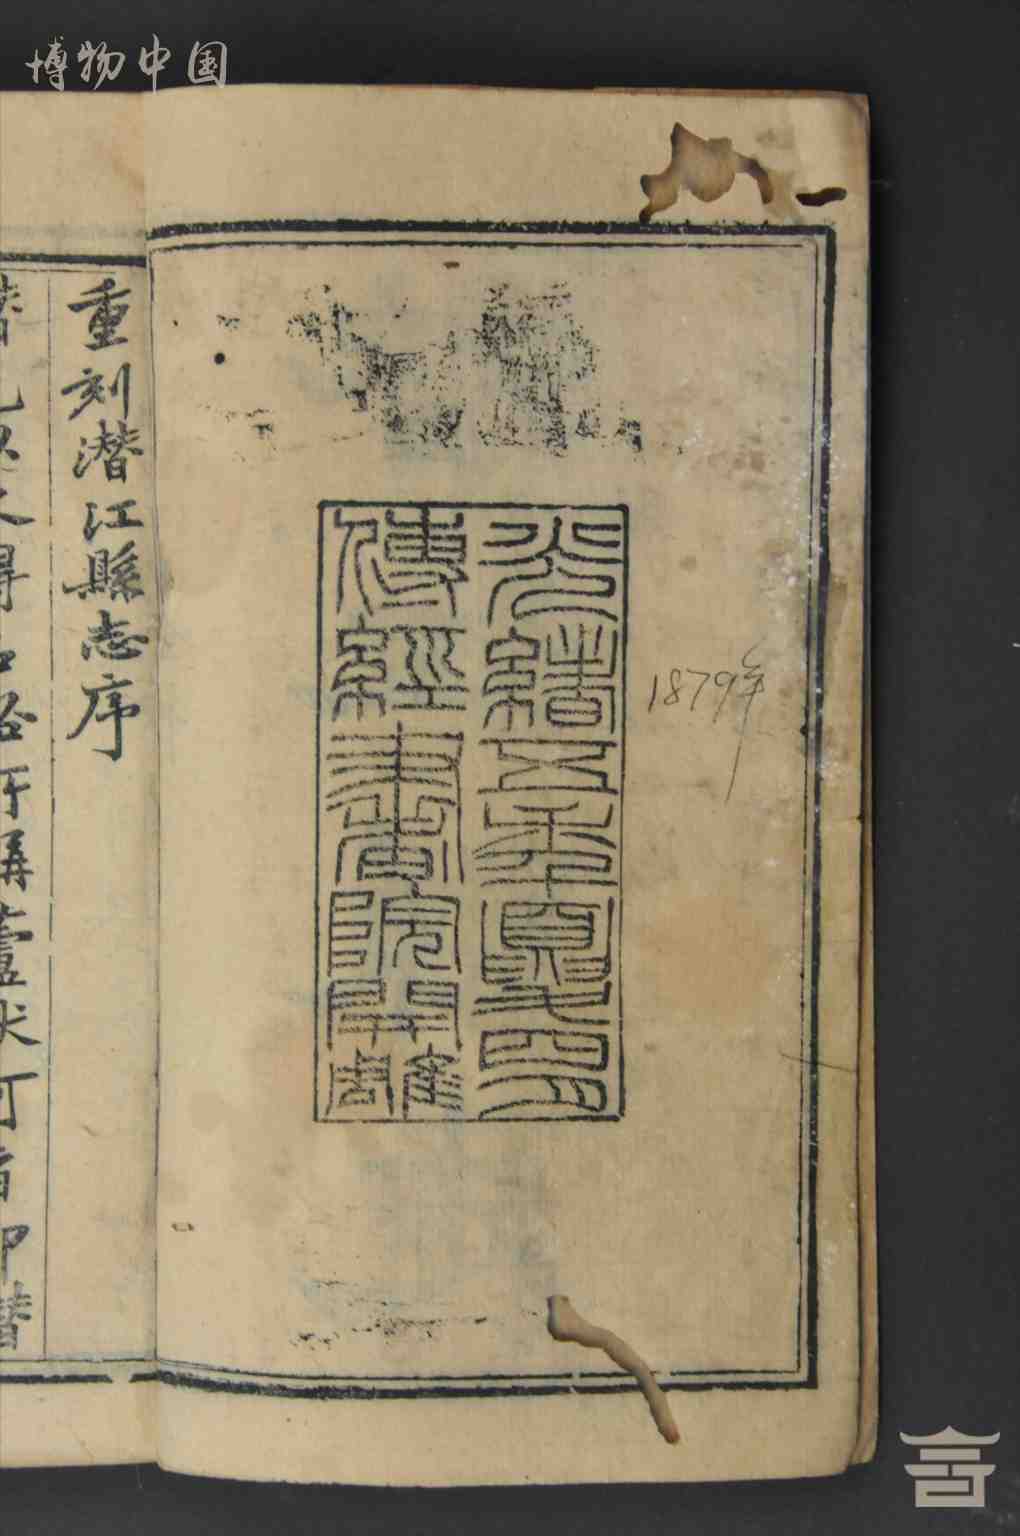 博物中国
光緒五年夏四月
傳經書院開雕
1879年
重刻潜江縣志序